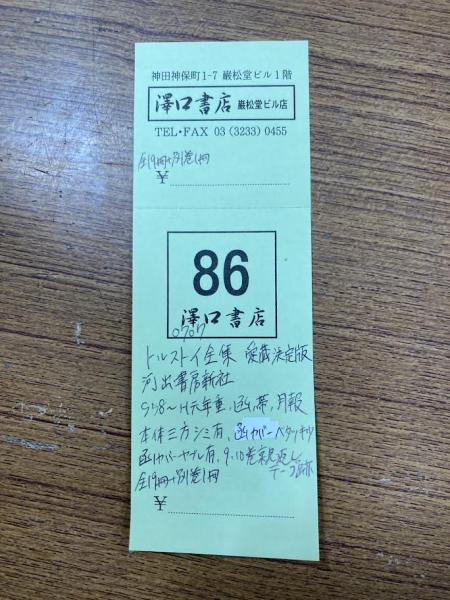 神田神保町1-7 巖松堂ビル1階
澤口書店 巖松堂ビル店
TEL・FAX 03(3233)0455
全19冊+別巻1冊
¥
86
澤口書店
0707
トルストイ全集 愛蔵決定版
河出書房新社
S58〜H元年重、函、帯、月報
本体三方シミ有、函カバーベタツキ少
函カバーヤブレ有、9、10巻裏見返し
テープ跡
全19冊+別巻1冊
¥